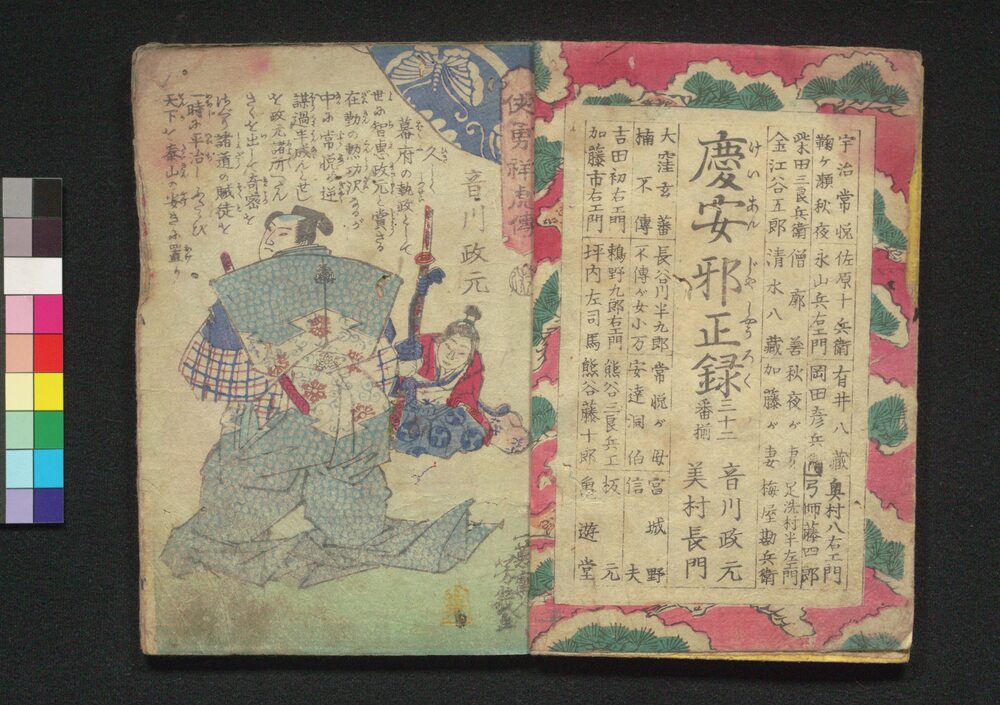 宇治常悦 佐原十兵衛 有井八藏 奥村八右エ門
鞠ヶ瀬秋夜 永山兵右エ門 岡田彦兵衛 弓師藤四郎
柴田三良兵衛 僧廓善 秋夜が妻 足洗村半左エ門
金江谷五郎 清水八藏 加藤が妻 梅屋勘兵衛
慶安邪正録 三十二番揃
けいあんじやしやうろく
音川政元
美村長門
大窪玄蕃 長谷川半九郎 常悦が母 宮城野
楠不傳 不傳が女小万 安達洞伯 信夫
吉田初右エ門 鵜野九郎右エ門 熊谷三良兵エ 坂元
加藤市右エ門 坪内左司馬 熊谷藤十郎 遊堂
侠勇祥虎傳
音川政元
幕府の執政として
世に智恵政元と賞さる
在勤の勲功沢あるが
中に常悦が逆
謀過半成んせし
を政元諸所へん
きくを出して奇密を
諸道の賊徒を
一時に平治し
天下を泰山の安きに置り